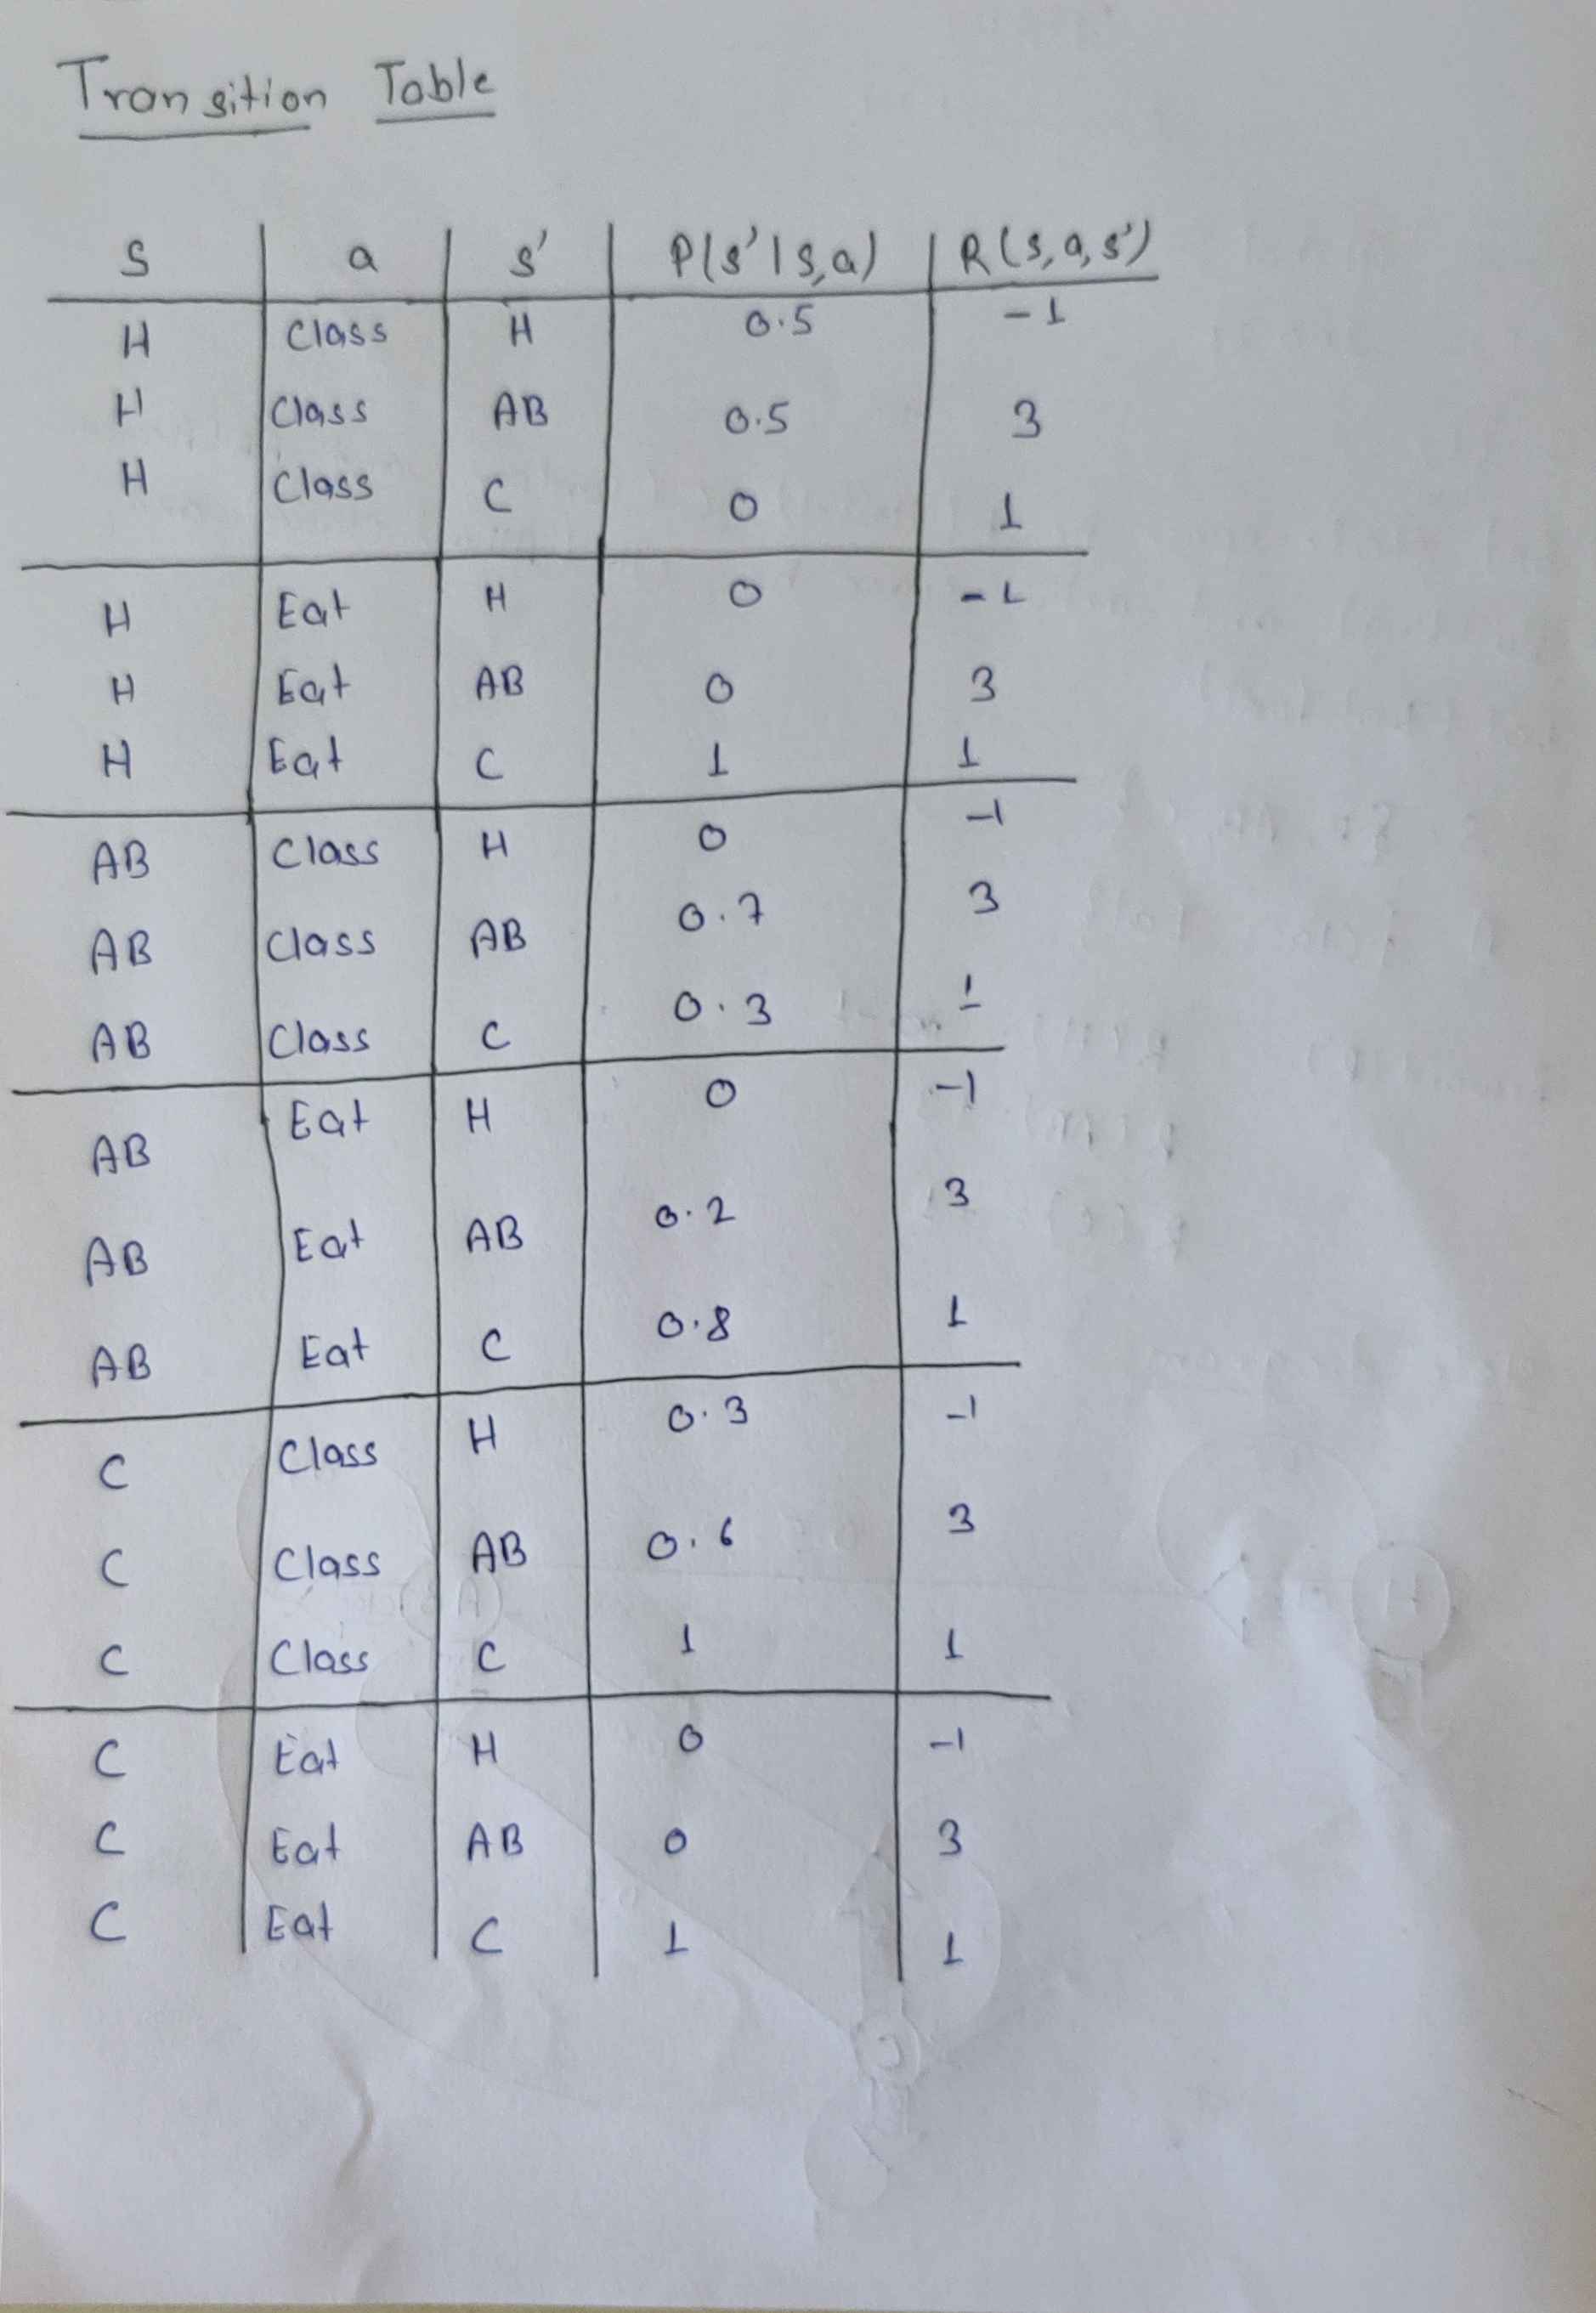 Transition Table
S a s' P(s'|s,a) R(s,a,s')
H Class H 0.5 -1
H Class AB 0.5 3
H Class C 0 1
H Eat H 0 -1
H Eat AB 0 3
H Eat C 1 1
AB Class H 0 -1
AB Class AB 0.7 3
AB Class C 0.3 1
AB Eat H 0 -1
AB Eat AB 0.2 3
AB Eat C 0.8 1
C Class H 0.3 -1
C Class AB 0.6 3
C Class C 1 1
C Eat H 0 -1
C Eat AB 0 3
C Eat C 1 1